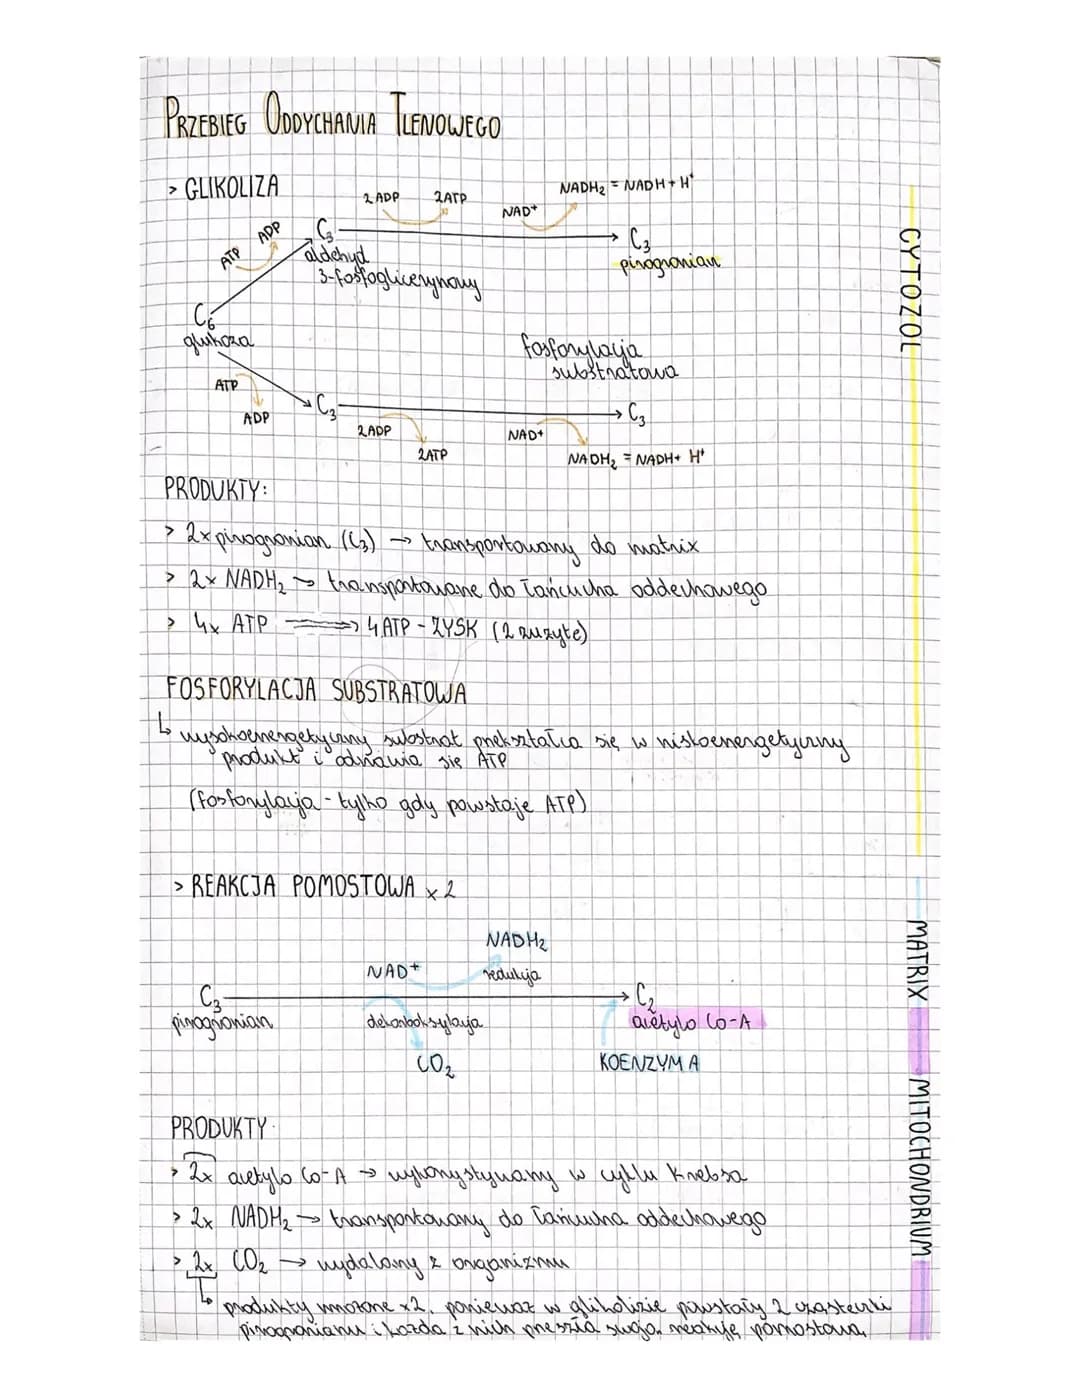 PRZEBIEG ODDYCHANIA TLENOWEGO
> GLIKOLIZA
2 ADP 2ATP
NAD+
NADH₂ = NADH + H⁺
ATP ADP
C₃
aldehyd
3-fosfoglicerynowy
C₃
pirogronian
C₆
glukoza
fosforylacja
substratowa
ATP
ADP
C₃
C₃
2ADP
2ATP
NAD+
NADH₂ = NADH + H⁺
PRODUKTY:
> 2x pirogronian (C₃) → transportowany do matrix
> 2x NADH₂ → transportowane do łańcucha oddechowego
> 4x ATP ⟹ 4 ATP - ZYSK (2 zużyte)
FOSFORYLACJA SUBSTRATOWA
↳ wysokoenergetyczny substrat przekształca się w niskoenergetyczny
produkt i odnawia się ATP
(fosforylacja - tylko gdy powstaje ATP)
> REAKCJA POMOSTOWA x2
NADH₂
NAD+
redukcja
C₃
pirogronian
dekarboksylacja
CO₂
C₂
acetylo Co-A
KOENZYM A
PRODUKTY:
> 2x acetylo Co-A → wykorzystywany w cyklu Krebsa
> 2x NADH₂ → transportowany do łańcucha oddechowego
> 2x CO₂ → wydalany z organizmu
↳ produkty mnożone x2, ponieważ w glikolizie powstały 2 cząsteczki
pirogronianu i każda z nich przeszła swoją reakcję pomostową
CYTOZOL
MATRIX MITOCHONDRIUM